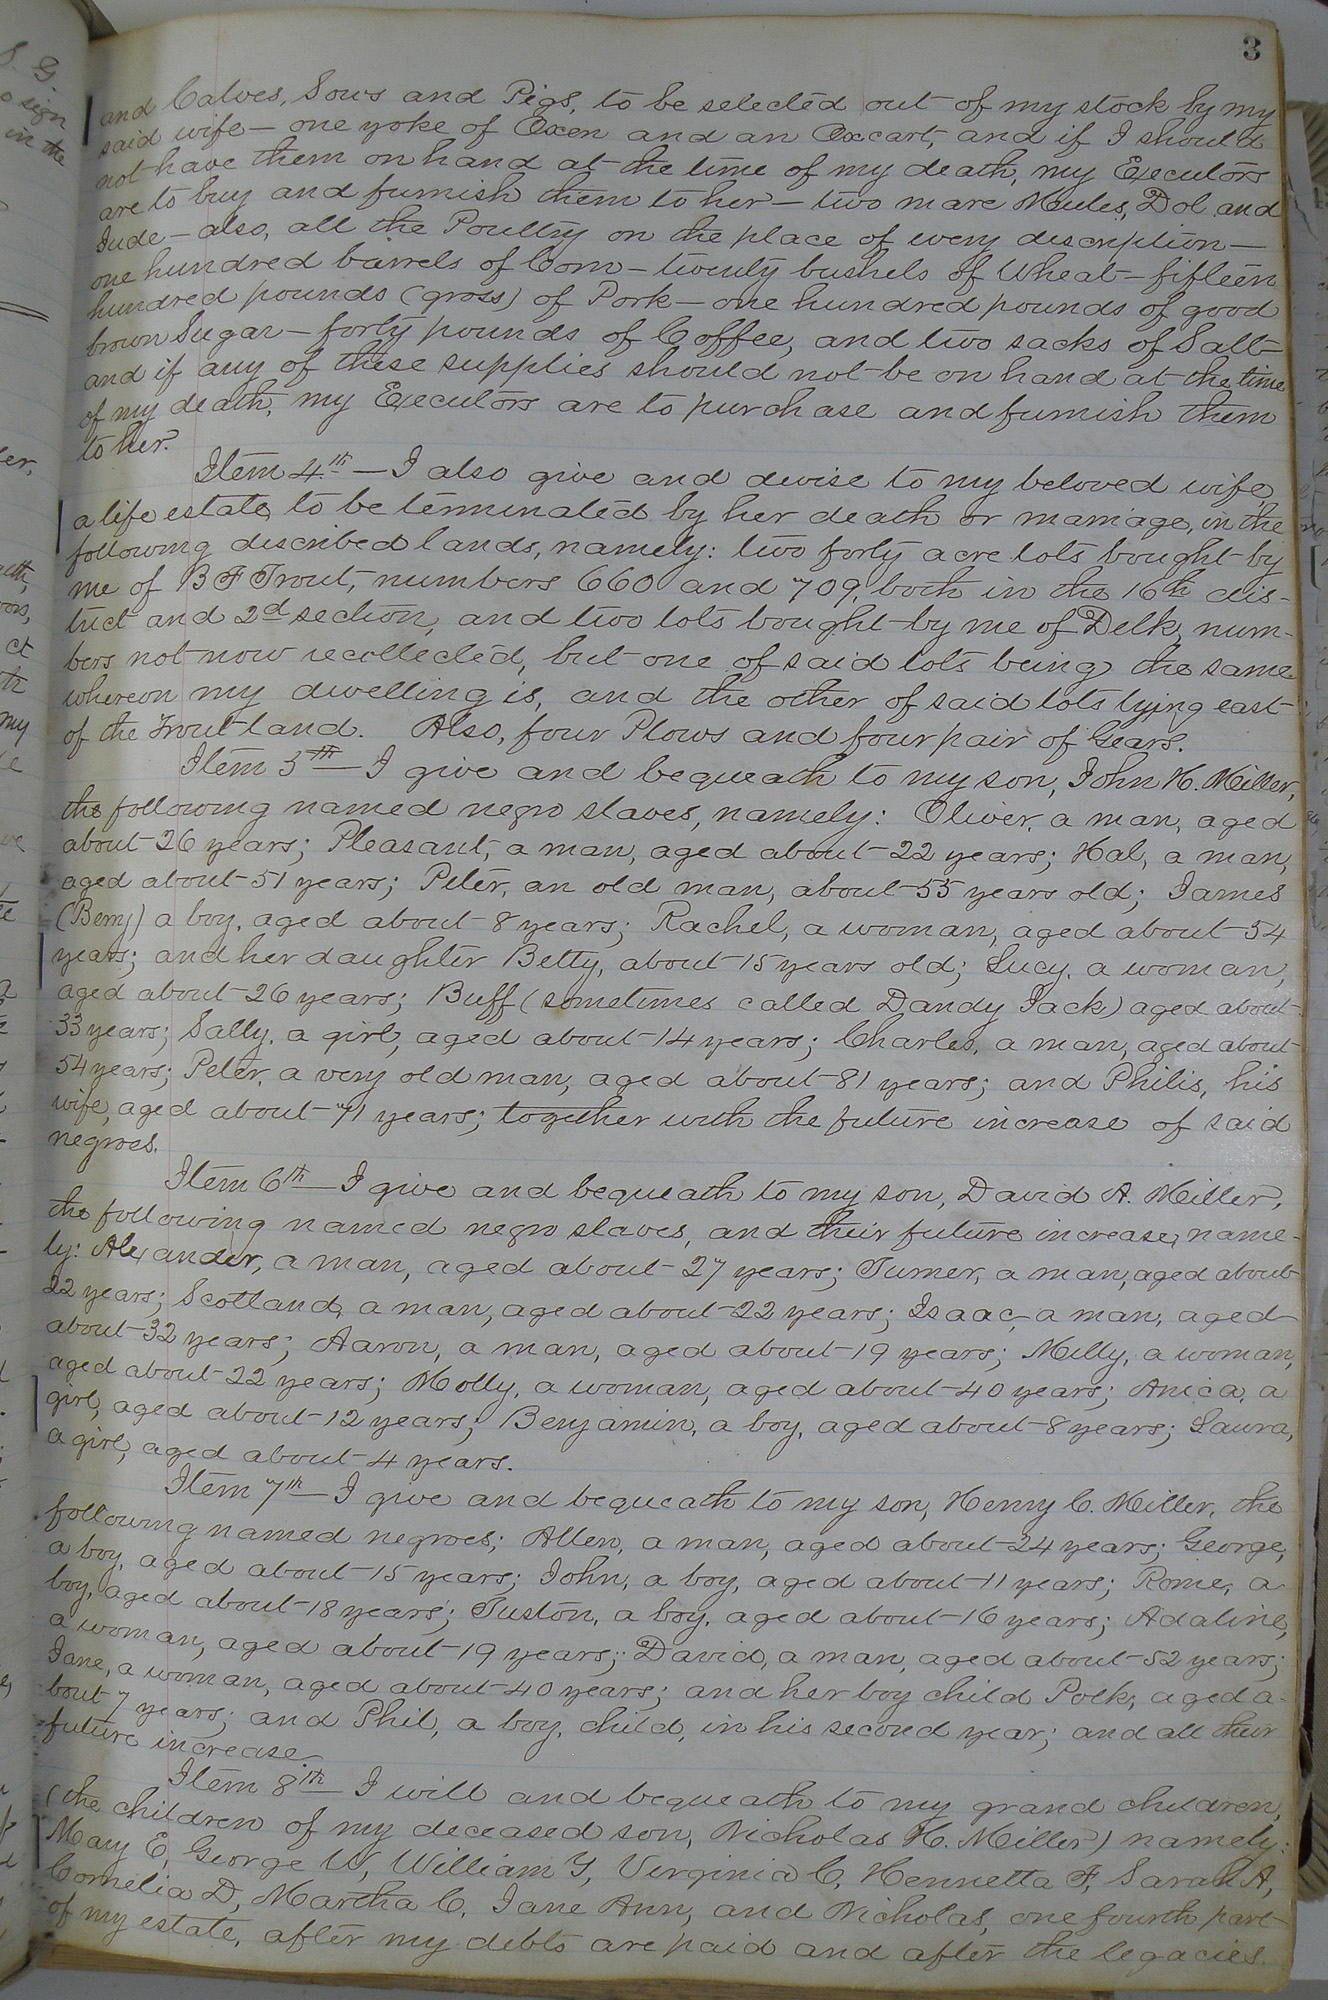 3
and Calves, Sows and Pigs, to be selected out of my stock by my
said wife — one yoke of Oxen and an Oxcart, and if I should
not have them on hand at the time of my death, my Executors
are to buy and furnish them to her — two mare Mules, Dol and
Jude — also, all the Poultry on the place of every discription —
one hundred barrels of Corn — twenty bushels of Wheat — fifteen
hundred pounds (gross) of Pork — one hundred pounds of good
brown Sugar — forty pounds of Coffee, and two sacks of Salt —
and if any of these supplies should not be on hand at the time
of my death, my Executors are to purchase and furnish them
to her.
Item 4th — I also give and devise to my beloved wife
a life estate, to be terminated by her death or marriage, in the
following discribed lands, namely: two forty acre lots bought by
me of B F Trout, numbers 660 and 709, both in the 16th dis-
trict and 2d section, and two lots bought by me of Delk, num-
bers not now recollected, but one of said lots being the same
whereon my dwelling is, and the other of said lots lying east
of the Trout land. Also, four Plows and four pair of Gears.
Item 5th — I give and bequeath to my son, John H. Miller,
the following named negro slaves, namely: Oliver, a man, aged
about 26 years; Pleasant, a man, aged about 22 years; Hal, a man,
aged about 51 years; Peter, an old man, about 55 years old; James
(Berry) a boy, aged about 8 years; Rachel, a woman, aged about 54
years; and her daughter Betty, about 15 years old; Lucy, a woman,
aged about 26 years; Buff (sometimes called Dandy Jack) aged about
33 years; Sally, a girl, aged about 14 years; Charles, a man, aged about
54 years; Peter, a very old man, aged about 81 years; and Philis, his
wife, aged about 71 years; together with the future increase of said
negroes.
Item 6th — I give and bequeath to my son, David A. Miller,
the following named negro slaves, and their future increase, name-
ly: Alexander, a man, aged about 27 years; Turner, a man, aged about
22 years; Scotland, a man, aged about 22 years; Isaac, a man, aged
about 32 years; Aaron, a man, aged about 19 years; Milly, a woman,
aged about 22 years; Molly, a woman, aged about 40 years; Anica, a
girl, aged about 12 years; Benjamin, a boy, aged about 8 years; Laura,
a girl, aged about 4 years.
Item 7th — I give and bequeath to my son, Henry C. Miller, the
following named negroes; Allen, a man, aged about 24 years; George,
a boy, aged about 15 years; John, a boy, aged about 11 years; Rome, a
boy, aged about 18 years; Juston, a boy, aged about 16 years; Adaline,
a woman, aged about 19 years; David, a man, aged about 52 years;
Jane, a woman, aged about 40 years; and her boy child Polk, aged a-
bout 7 years; and Phil, a boy, child, in his second year; and all their
future increase.
Item 8th — I will and bequeath to my grand children,
(the children of my deceased son, Nicholas H. Miller) namely:
Mary E, George W, William Y, Virginia C, Hennetta F, Sarah A,
Cornelia D, Martha C, Jane Ann, and Nicholas, one fourth part
of my estate, after my debts are paid and after the legacies.